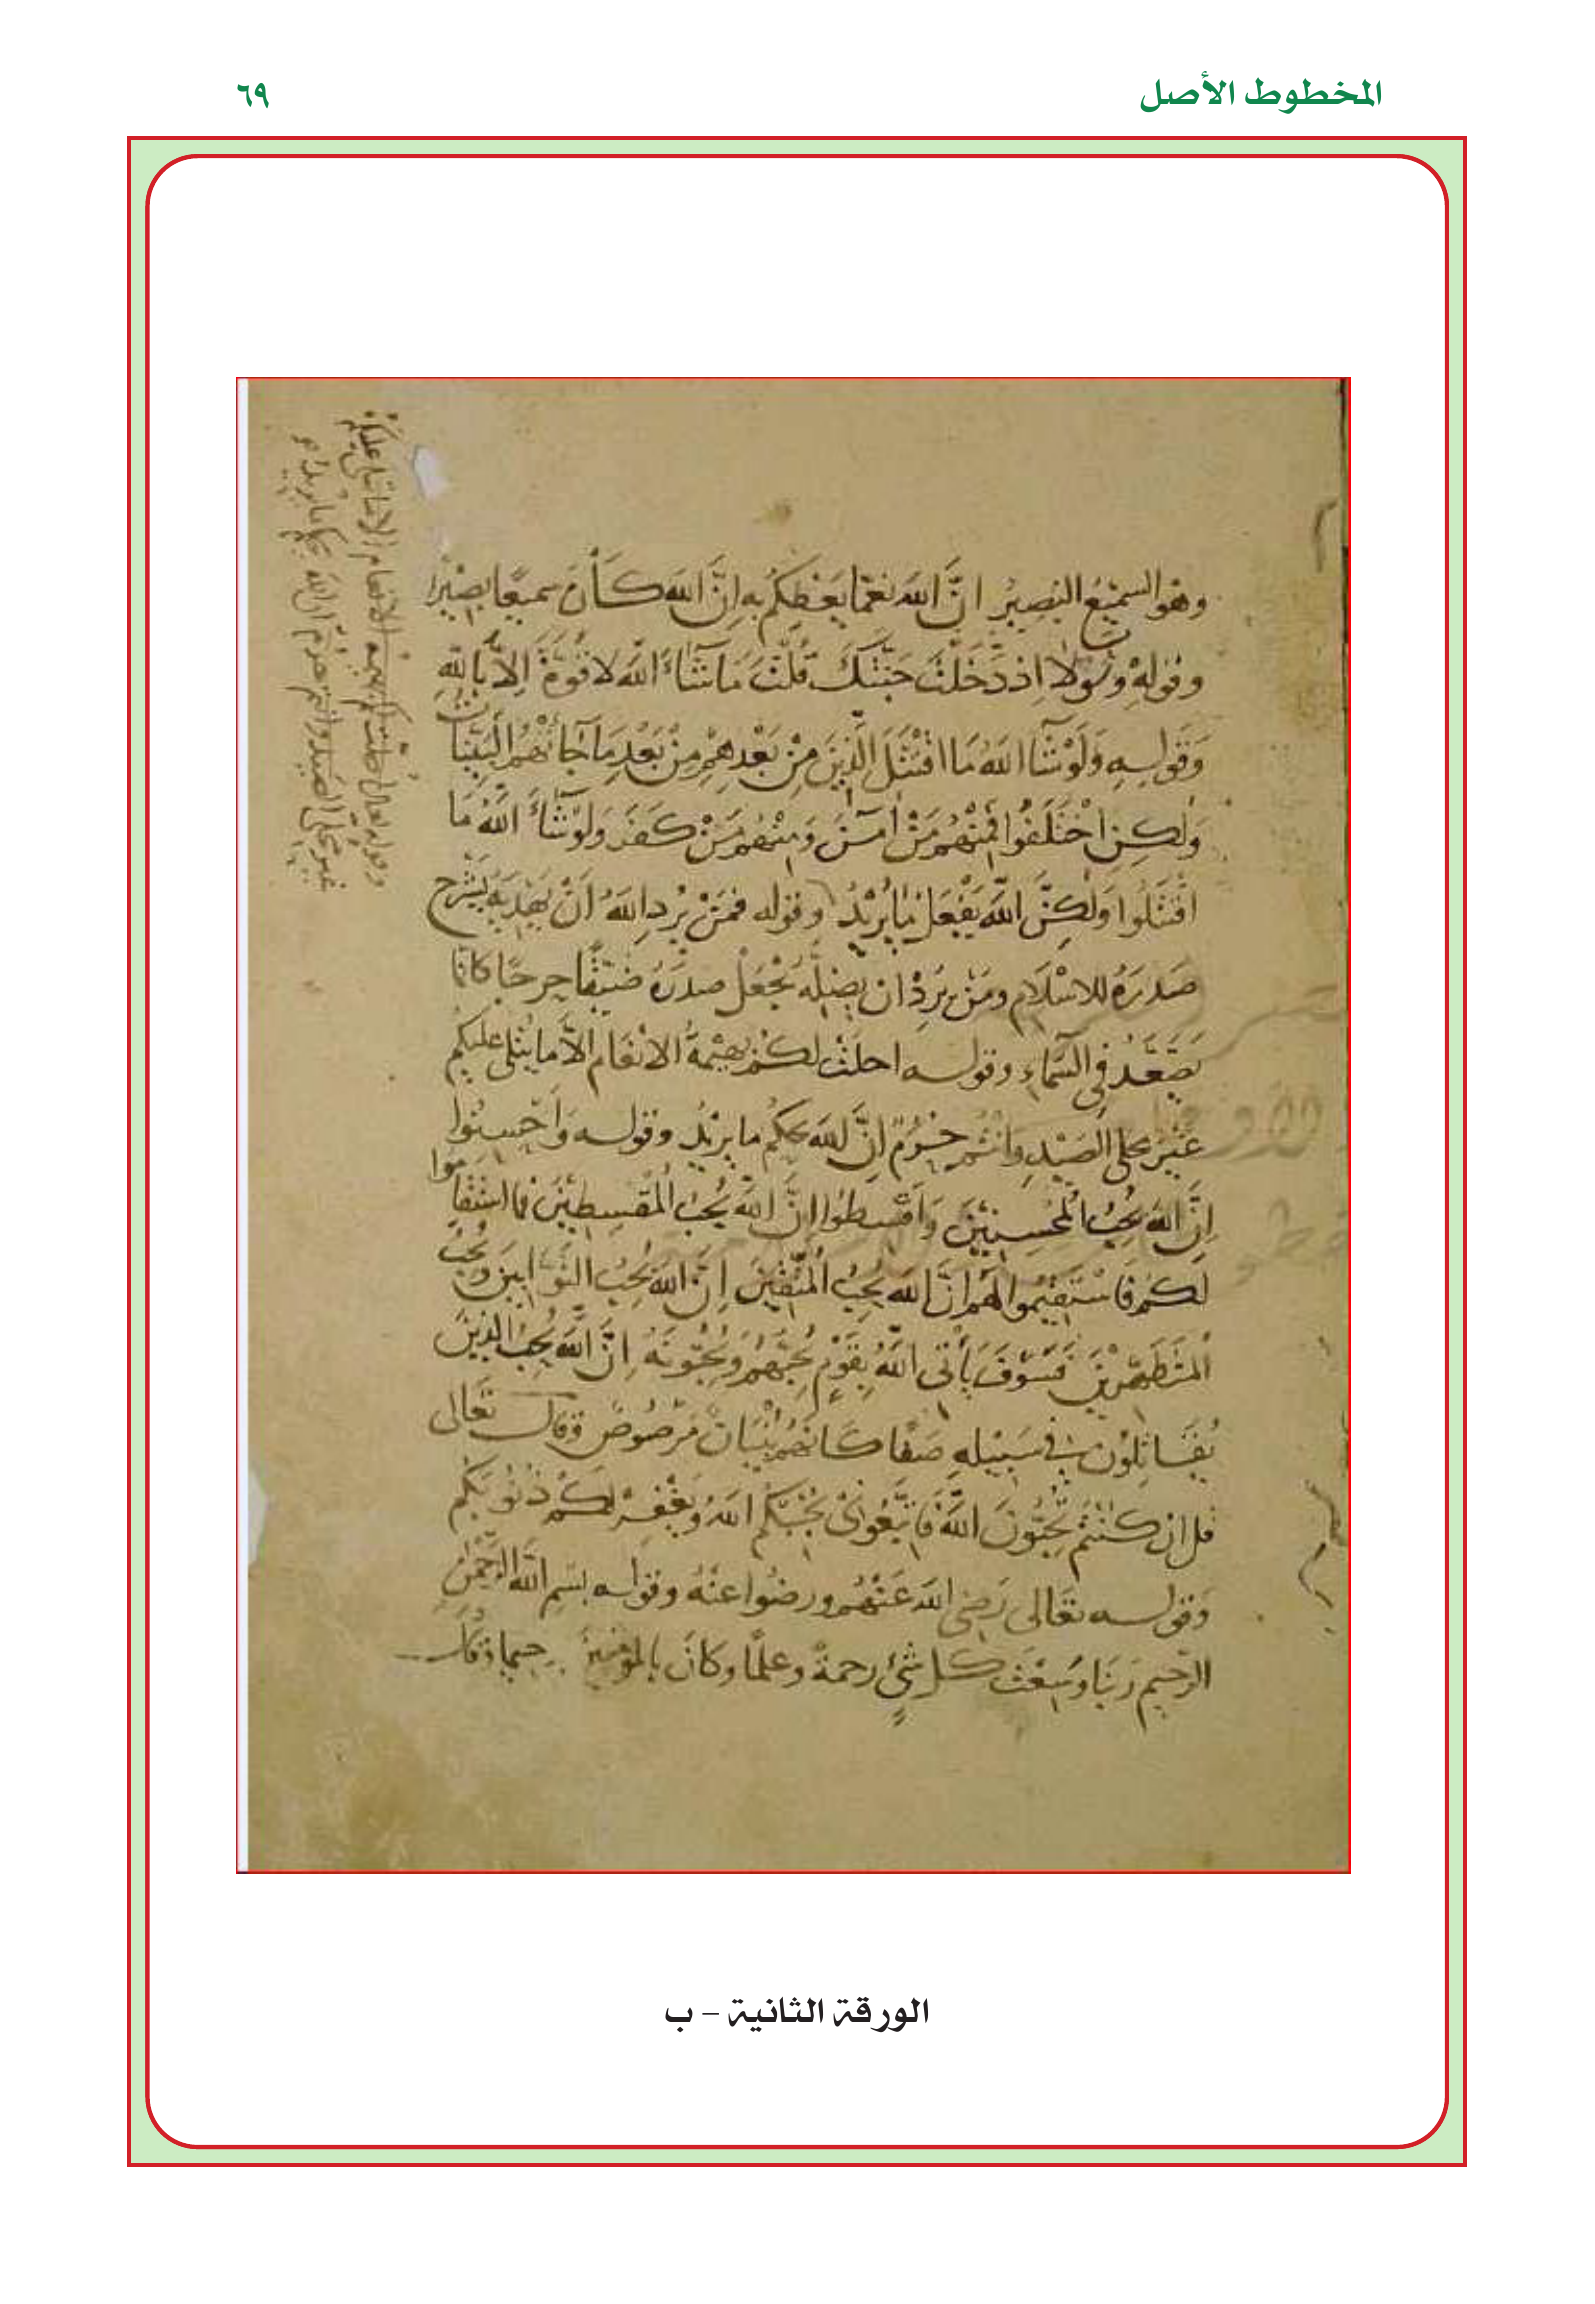 المخطوط الأصل
٦٩
وهو السميع البصير ان الله نعما يعظكم به ان الله كان سميعا بصيرا
وقوله ولولا اذ دخلت جنتك قلت ما شاء الله لا قوة الا بالله
وقوله ولو شا الله ما اقتتل الذين من بعدهم من بعد ما جاتهم البينات
ولكن اختلفوا فمنهم من امن ومنهم من كفر ولو شاء الله ما
اقتتلوا ولكن الله يفعل ما يريد وقوله فمن يرد الله ان يهديه يشرح
صدره للاسلام ومن يرد ان يضله يجعل صدره ضيقا حرجا كانما
يصعد في السماء وقوله احلت لكم بهيمة الانعام الا ما يتلى عليكم
غير محلي الصيد وانتم حرم ان الله يحكم ما يريد وقوله واحسنوا
ان الله يحب المحسنين واقسطوا ان الله يحب المقسطين فما استقاموا
لكم فاستقيموا لهم ان الله يحب المتقين ان الله يحب التوابين ويحب
المتطهرين فسوف يأتي الله بقوم يحبهم ويحبونه ان الله يحب الذين
يقاتلون في سبيله صفا كانهم بنيان مرصوص وقال تعالى
قل ان كنتم تحبون الله فاتبعوني يحببكم الله ويغفر لكم ذنوبكم
وقوله تعالى رضي الله عنهم ورضوا عنه وقوله بسم الله الرحمن
الرحيم ربنا وسعت كل شيء رحمة وعلما وكان بالمؤمنين رحيما وقال
وقوله تعالى احلت لكم بهيمة الانعام الا ما يتلى عليكم
غير محلي الصيد وانتم حرم ان الله يحكم ما يريد
الورقة الثانية – ب